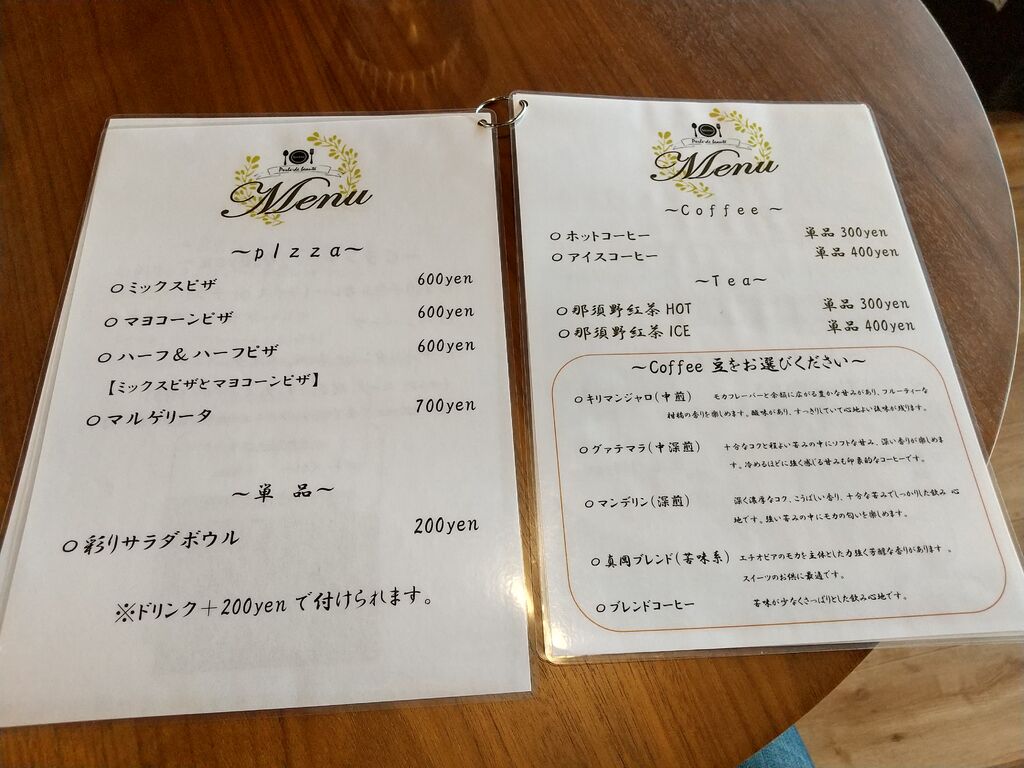 Perle de beauté
Menu
～pIzza～
○ミックスピザ 600yen
○マヨコーンピザ 600yen
○ハーフ＆ハーフピザ 600yen
【ミックスピザとマヨコーンピザ】
○マルゲリータ 700yen
～単品～
○彩りサラダボウル 200yen
※ドリンク＋200yenで付けられます。
Perle de beauté
Menu
～Coffee～
○ホットコーヒー 単品 300yen
○アイスコーヒー 単品 400yen
～Tea～
○那須野紅茶 HOT 単品 300yen
○那須野紅茶 ICE 単品 400yen
～Coffee 豆をお選びください～
○キリマンジャロ(中煎) モカフレーバーと余韻に広がる豊かな甘みがあり、フルーティーな
柑橘の香りを楽しめます。酸味があり、すっきりしていて心地よい後味が残ります。
○グァテマラ(中深煎) 十分なコクと程よい苦みの中にソフトな甘み、深い香りが楽しめま
す。冷めるほどに強く感じる甘みも印象的なコーヒーです。
○マンデリン(深煎) 深く濃厚なコク、こうばしい香り、十分な苦みでしっかりした飲み 心
地です。強い苦みの中にモカの匂いを楽しめます。
○真岡ブレンド(苦味系) エチオピアのモカを主体とした力強く芳醇な香りがあります。
スイーツのお供に最適です。
○ブレンドコーヒー 苦味が少なくさっぱりとした飲み心地です。